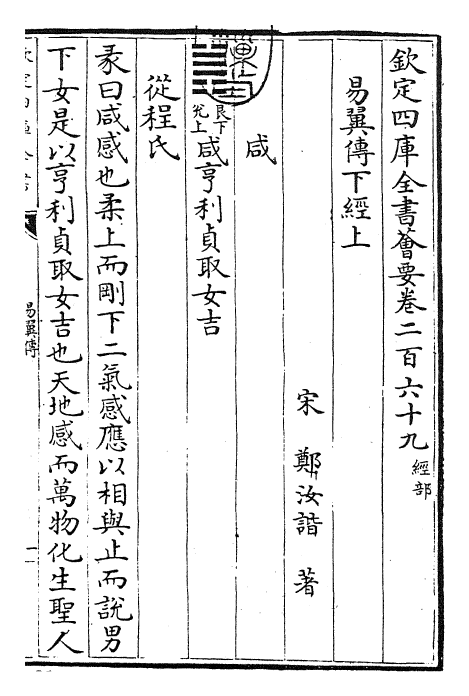 欽定四庫全書薈要卷二百六十九 經部
易翼傳下經上
宋 鄭汝諧 著
咸
艮下
兌上
咸亨利貞取女吉
從程氏
彖曰咸感也柔上而剛下二氣感應以相與止而說男
下女是以亨利貞取女吉也天地感而萬物化生聖人
易翼傳
一